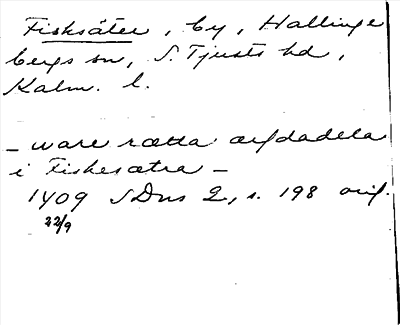 Fisksäter, by, Hallinge
bergs sn, S. Tjusts hd,
Kalm. l.
– ware rætta arfdadela
i Fiskesætra –
1409 SDns 2, s. 198 orig.
22/9